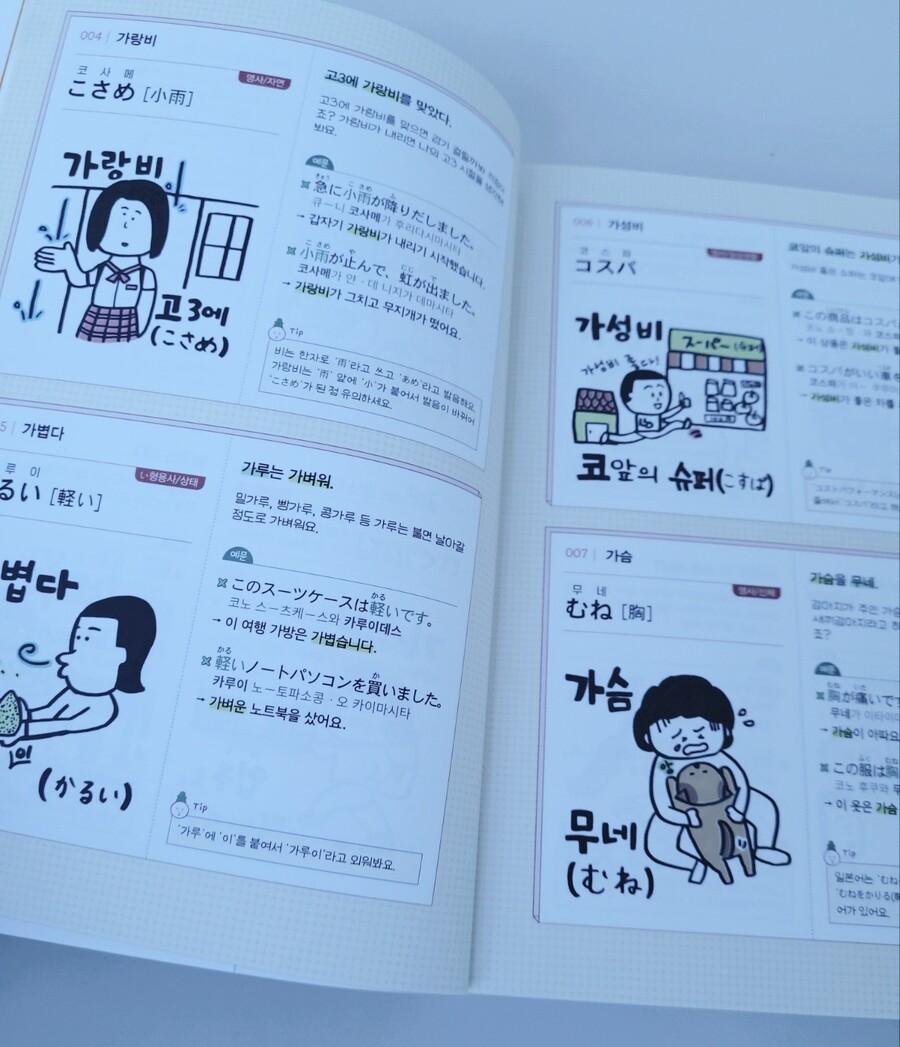 004 | 가랑비
코 사 메
こさめ [小雨]
명사/자연
가랑비
고3에
(こさめ)
고3에 가랑비를 맞았다.
고3에 가랑비를 맞으면 감기 걸릴까봐
죠? 가랑비가 내리면 나의 고3 시절을
봐요.
예문
きゅう こさめ ふ
急に小雨が降りだしました。
큐ー니 코사메가 후리다시마시타
→ 갑자기 가랑비가 내리기 시작했습니다.
こさめ や にじ で
小雨が止んで、虹が出ました。
코사메가 얀・데 니지가 데마시타
→ 가랑비가 그치고 무지개가 떴어요.
Tip
비는 한자로 '雨'라고 쓰고 'あめ'라고 발음해요.
가랑비는 '雨' 앞에 '小'가 붙어서 발음이 바뀌어
'こさめ'가 된 점 유의하세요.
5 | 가볍다
루 이
るい [軽い]
い형용사/상태
볍다
이
(かるい)
가루는 가벼워.
밀가루, 빵가루, 콩가루 등 가루는 불면 날아갈
정도로 가벼워요.
예문
かる
このスーツケースは軽いです。
코노 스ー츠케ー스와 카루이데스
→ 이 여행 가방은 가볍습니다.
かる か
軽いノートパソコンを買いました。
카루이 노ー토파소콩・오 카이마시타
→ 가벼운 노트북을 샀어요.
Tip
'가루'에 '이'를 붙여서 '가루이'라고 외워봐요.
006 | 가성비
코 스 파
コスパ
가성비
가성비 좋드라!
スーパー(슈퍼)
코앞의 슈퍼(こすぱ)
코앞의 슈퍼는 가성비가
예문
この商品はコスパ
→ 이 상품은 가성비가
コスパがいい車を
→ 가성비가 좋은 차를
Tip
007 | 가슴
무 네
むね [胸]
명사/신체
가슴
무네
(むね)
가슴을 무네.
강아지가 주인 가슴
새끼강아지라고
죠?
예문
むね いた
胸が痛いです
무네가 이타이
→ 가슴이 아파요
ふく むね
この服は胸
코노 후쿠와 무
→ 이 옷은 가슴
Tip
일본어는 'むね
'むねをかりる(
어가 있어요.